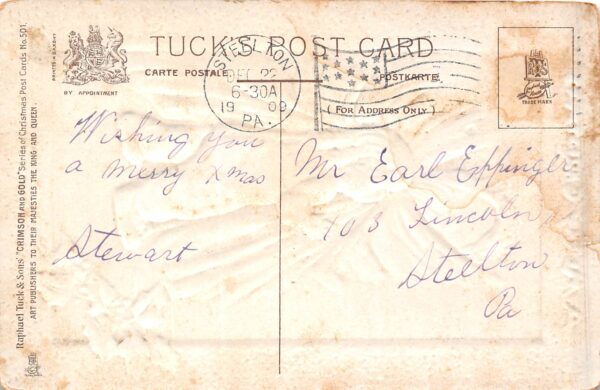 TUCK'S POST CARD
CARTE POSTALE
POSTKARTE
( FOR ADDRESS ONLY )
BY APPOINTMENT
STEELTON
DEC 22
6-30A
1909
PA.
TRADE MARK
Raphael Tuck & Sons' "CRIMSON AND GOLD" Series of Christmas Post Cards No. 501.
ART PUBLISHERS TO THEIR MAJESTIES THE KING AND QUEEN.
Wishing you
a merry Xmas
Stewart
Mr Earl Eppinger
103 Lincoln
Steelton
Pa